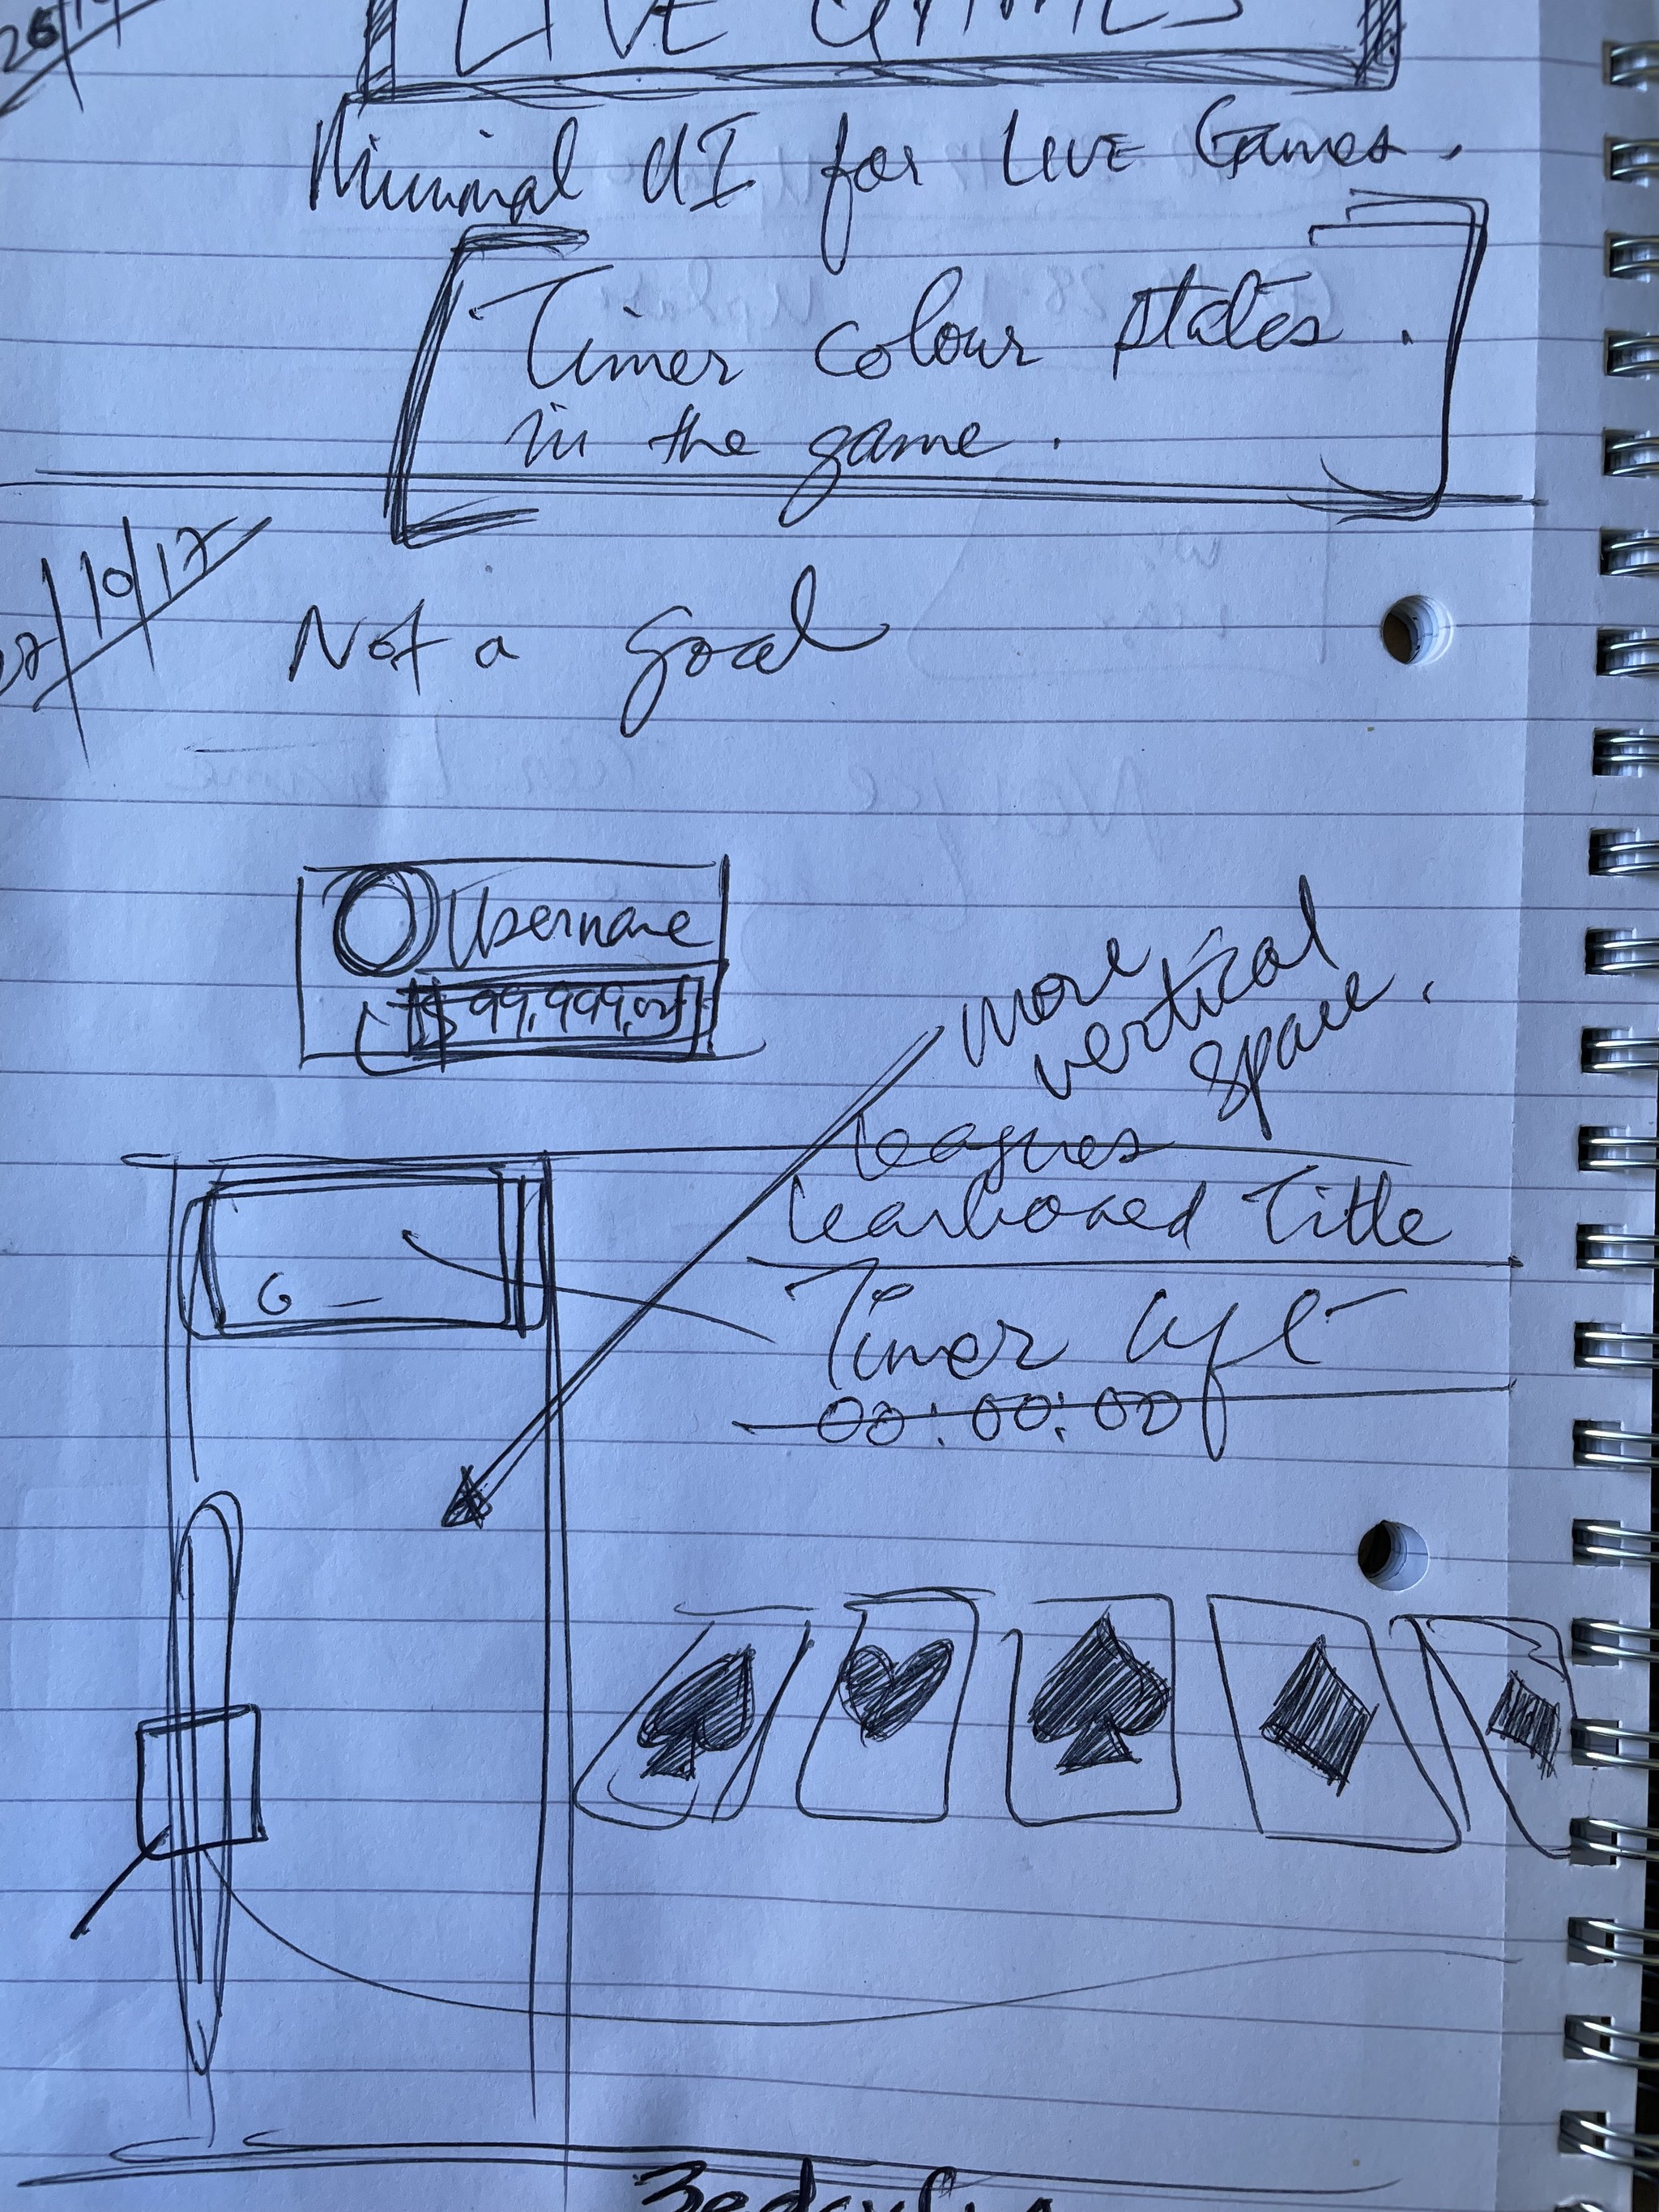 26/1
LIVE GAMES
Minimal UI for LIVE Games.
Timer colour states.
in the game.
27/10/17
Not a goal
Username
$ 99,999,
more
vertical
space.
leagues
learboaed Title
Timer left
00:00:00
G